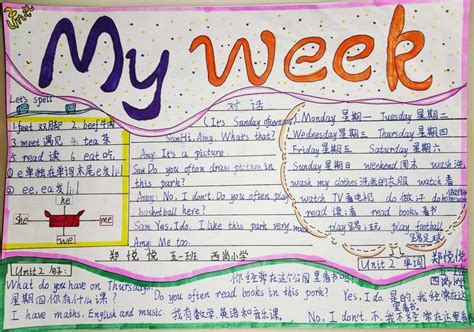 Unit 2
My Week
Let's spell
1 feet 双脚 2. beef 牛肉
3 meet 遇见 4 tea 茶
5 read 读 6 eat 吃
① e 单独在单词末尾 e发[i:]
② ee, ea发[i:]
he
she
me
we
对话
(It's Sunday afternoon)
Sam: Hi, Amy. What's that?
Amy: It's a picture.
Sam: Do you often draw picture in
this park?
Amy: No, I don't. Do you often play
basketball here?
Sam: Yes, I do. I like this park very much
Amy: Me too.
郑悦悦 五一班 西岗小学
Monday 星期一 Tuesday 星期二
Wednesday 星期三 Thursday 星期四
Friday 星期五 Saturday 星期六
Sunday 星期日 weekend 周末 wash 洗
wash my clothes 洗我的衣服 watch 看
watch TV 看电视 do 做 do homework
read 读;看 read books 看书
play 踢;玩 play football
踢足球
Unit 2 单词
郑悦悦
五一班
西岗小学
Unit 2 句子:
What do you have on Thursdays?
星期四你有什么课?
I have maths, English and music. 我有数学、英语和音乐课。
你经常在这个公园里看书吗?
Do you often read books in this park?
Yes, I do. 是的,我经常在这里
No, I don't. 不,我不经常在这里